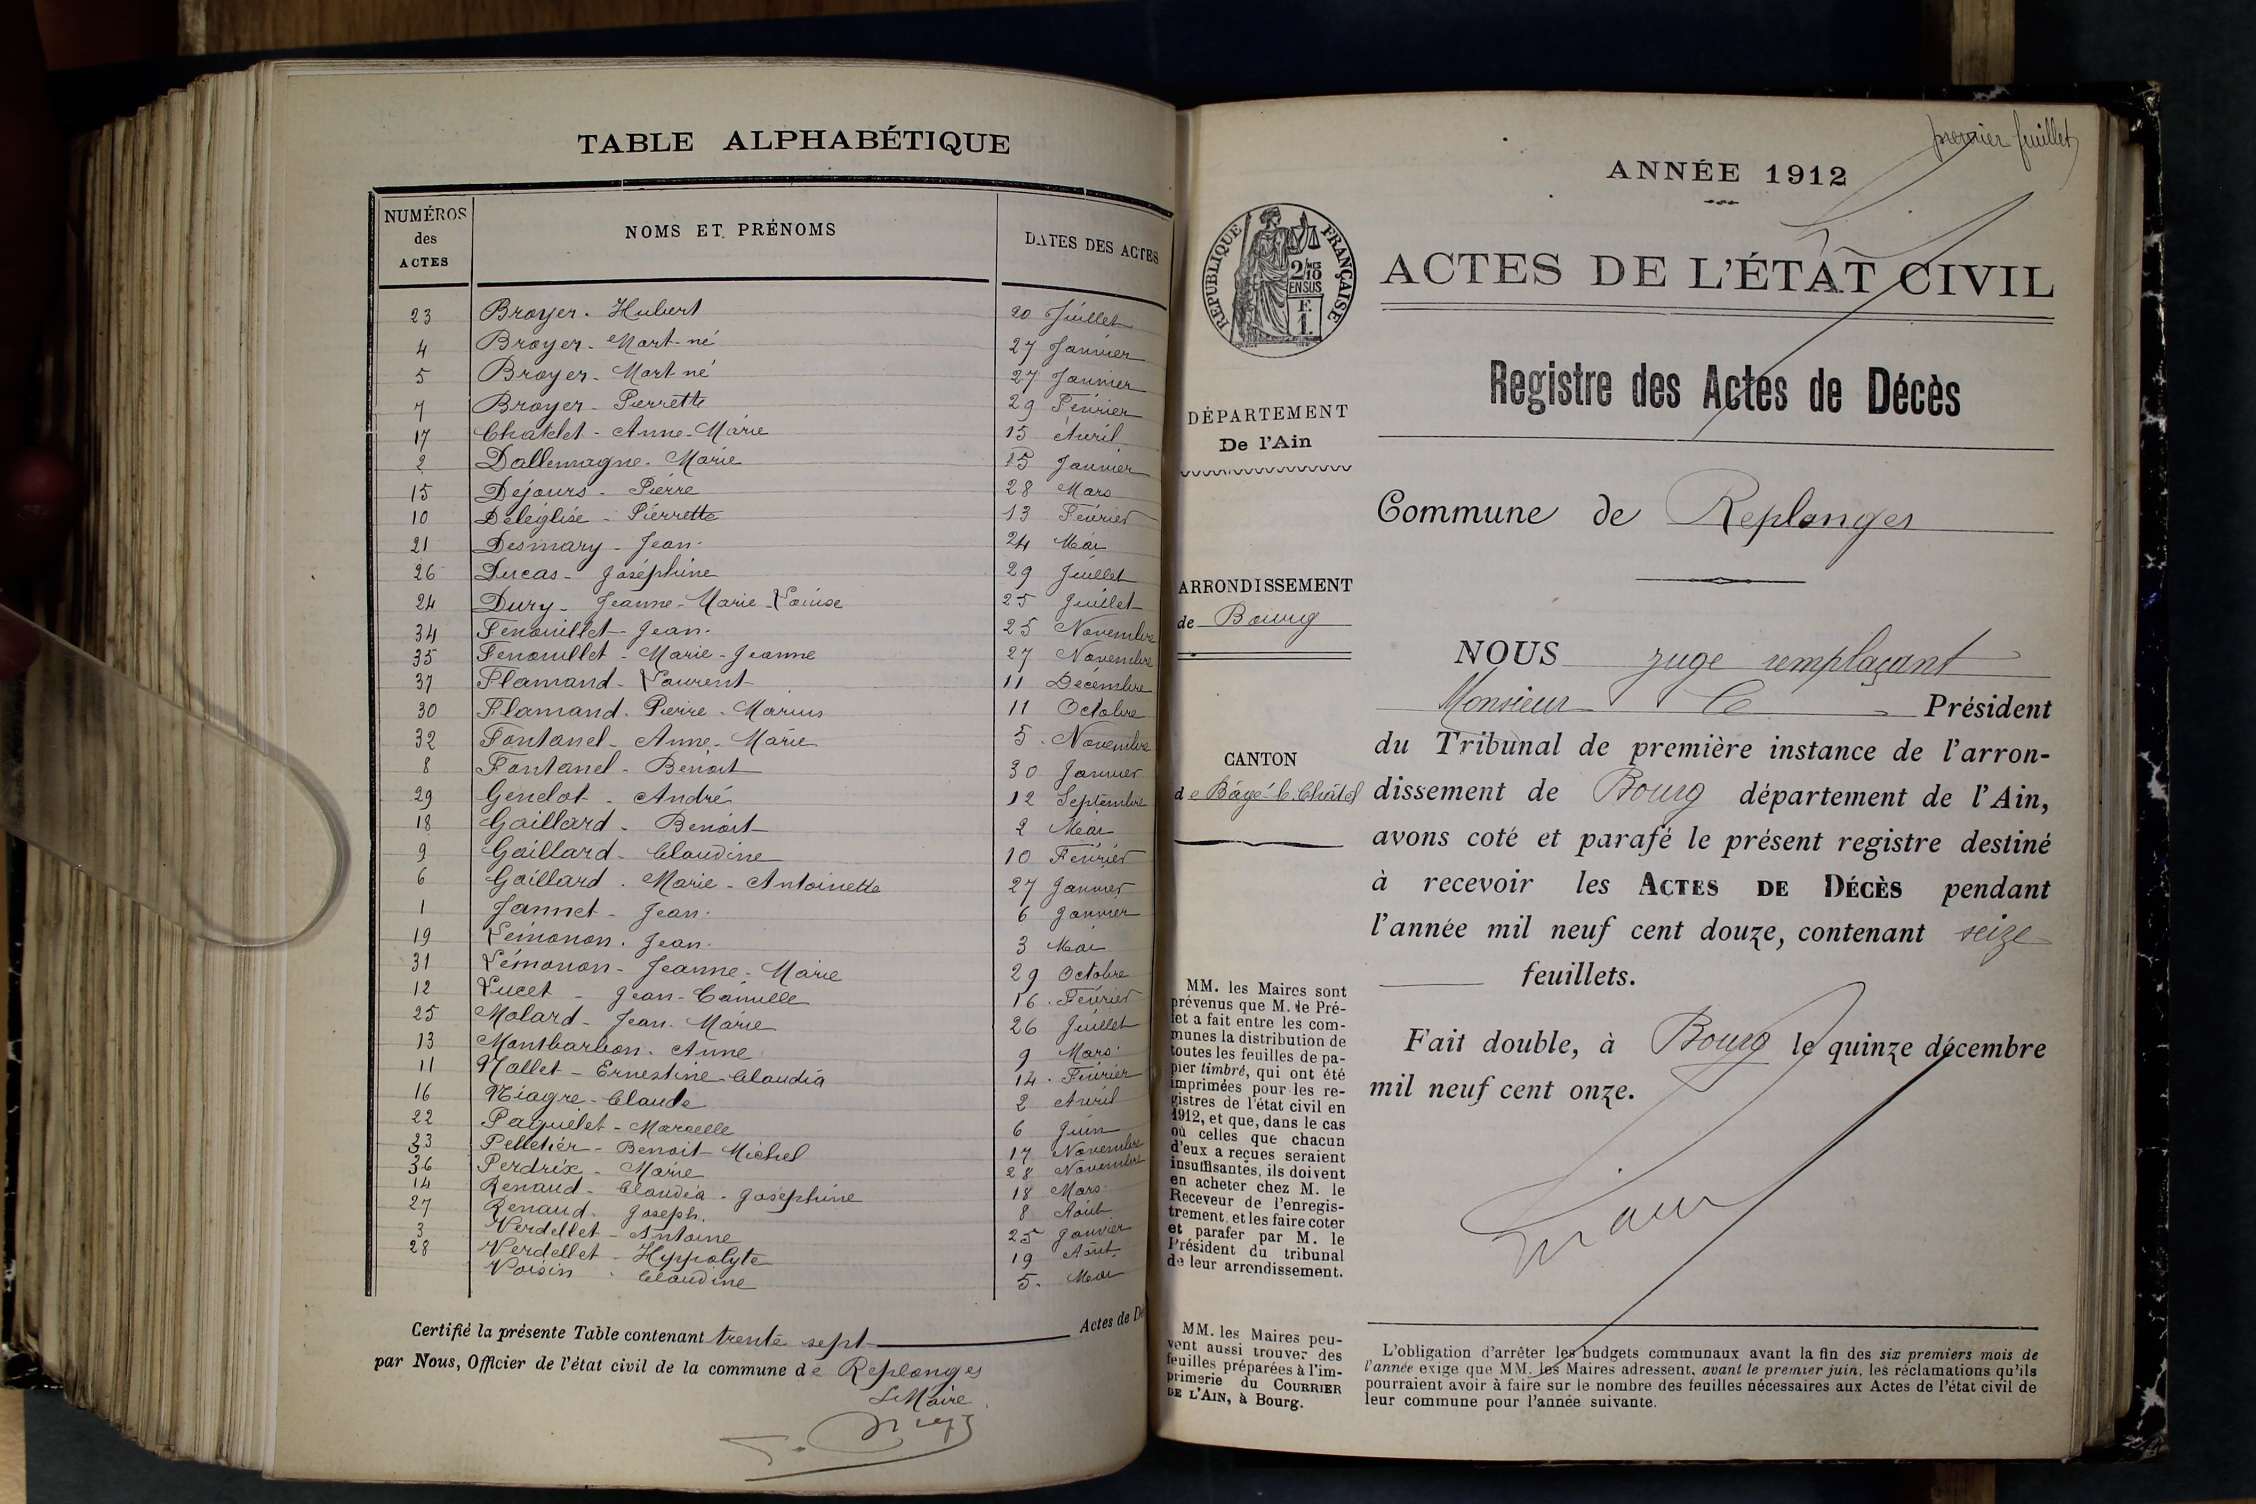 TABLE ALPHABÉTIQUE
NUMÉROS des ACTES
NOMS ET PRÉNOMS
DATES DES ACTES
23 Broyer. Hubert 20 Juillet
4 Broyer. Mort-né 27 Janvier
5 Broyer. Mort né 27 Janvier
7 Broyer. Pierrette 29 Février
17 Chatelet - Anne-Marie 15 Avril
2 Dallemagne. Marie 15 Janvier
15 Dejours - Pierre 28 Mars
10 Deléglise - Pierrette 13 Février
21 Desmary - Jean. 24 Mai
26 Ducas - Joséphine 29 Juillet
24 Dury - Jeanne-Marie-Louise 25 Juillet
34 Fenouillet - Jean. 25 Novembre
35 Fenouillet - Marie-Jeanne 27 Novembre
37 Flamand - Laurent 11 Décembre
30 Flamand. Pierre-Marius 11 Octobre
32 Fontanel - Anne-Marie 5. Novembre
8 Fontanel - Benoit 30 Janvier
29 Genelot - André 12 Septembre
18 Gaillard - Benoit 2 Mai
9 Gaillard - Claudine 10 Février
6 Gaillard. Marie-Antoinette 27 Janvier
1 Jannet - Jean. 6 Janvier
19 Lémonon. Jean. 3 Mai
31 Lémonon - Jeanne-Marie 29 Octobre
12 Lucet - Jean-Camille 16. Février
25 Molard - Jean-Marie 26 Juillet
13 Montbarbon. Anne 9 Mars
11 Nallet - Ernestine Claudia 14. Février
16 Niogre - Claude 2 Avril
22 Paquelet - Marcelle 6 Juin
33 Pelletier - Benoit Michel 17 Novembre
36 Perdrix - Marie 28 Novembre
14 Renaud - Claudia-Joséphine 18 Mars
27 Renaud. Joseph. 8 Août
3 Verdellet - Antoine 25 Janvier
28 Verdellet - Hyppolyte 19 Août
Voisin Claudine 5. Mai
Certifié la présente Table contenant trente sept Actes de Dé
par Nous, Officier de l'état civil de la commune de Replonges
Le Maire
premier feuillet
ANNÉE 1912
ACTES DE L'ÉTAT CIVIL
Registre des Actes de Décès
RÉPUBLIQUE FRANÇAISE
2/MES
10
EN SUS
F.
1.
DÉPARTEMENT
De l'Ain
ARRONDISSEMENT
de Bourg
CANTON
de Bâgé-le-Châtel
MM. les Maires sont
prévenus que M. le Pré-
fet a fait entre les com-
munes la distribution de
toutes les feuilles de pa-
pier timbré, qui ont été
imprimées pour les re-
gistres de l'état civil en
1912, et que, dans le cas
où celles que chacun
d'eux a reçues seraient
insuffisantes, ils doivent
en acheter chez M. le
Receveur de l'enregis-
trement, et les faire coter
et parafer par M. le
Président du tribunal
de leur arrondissement.
MM. les Maires peu-
vent aussi trouver des
feuilles préparées à l'im-
primerie du COURRIER
DE L'AIN, à Bourg.
Commune de Replonges
NOUS juge remplaçant
Monsieur le Président
du Tribunal de première instance de l'arron-
dissement de Bourg département de l'Ain,
avons coté et parafé le présent registre destiné
à recevoir les ACTES DE DÉCÈS pendant
l'année mil neuf cent douze, contenant seize
feuillets.
Fait double, à Bourg le quinze décembre
mil neuf cent onze.
L'obligation d'arrêter les budgets communaux avant la fin des six premiers mois de
l'année exige que MM. les Maires adressent, avant le premier juin, les réclamations qu'ils
pourraient avoir à faire sur le nombre des feuilles nécessaires aux Actes de l'état civil de
leur commune pour l'année suivante.